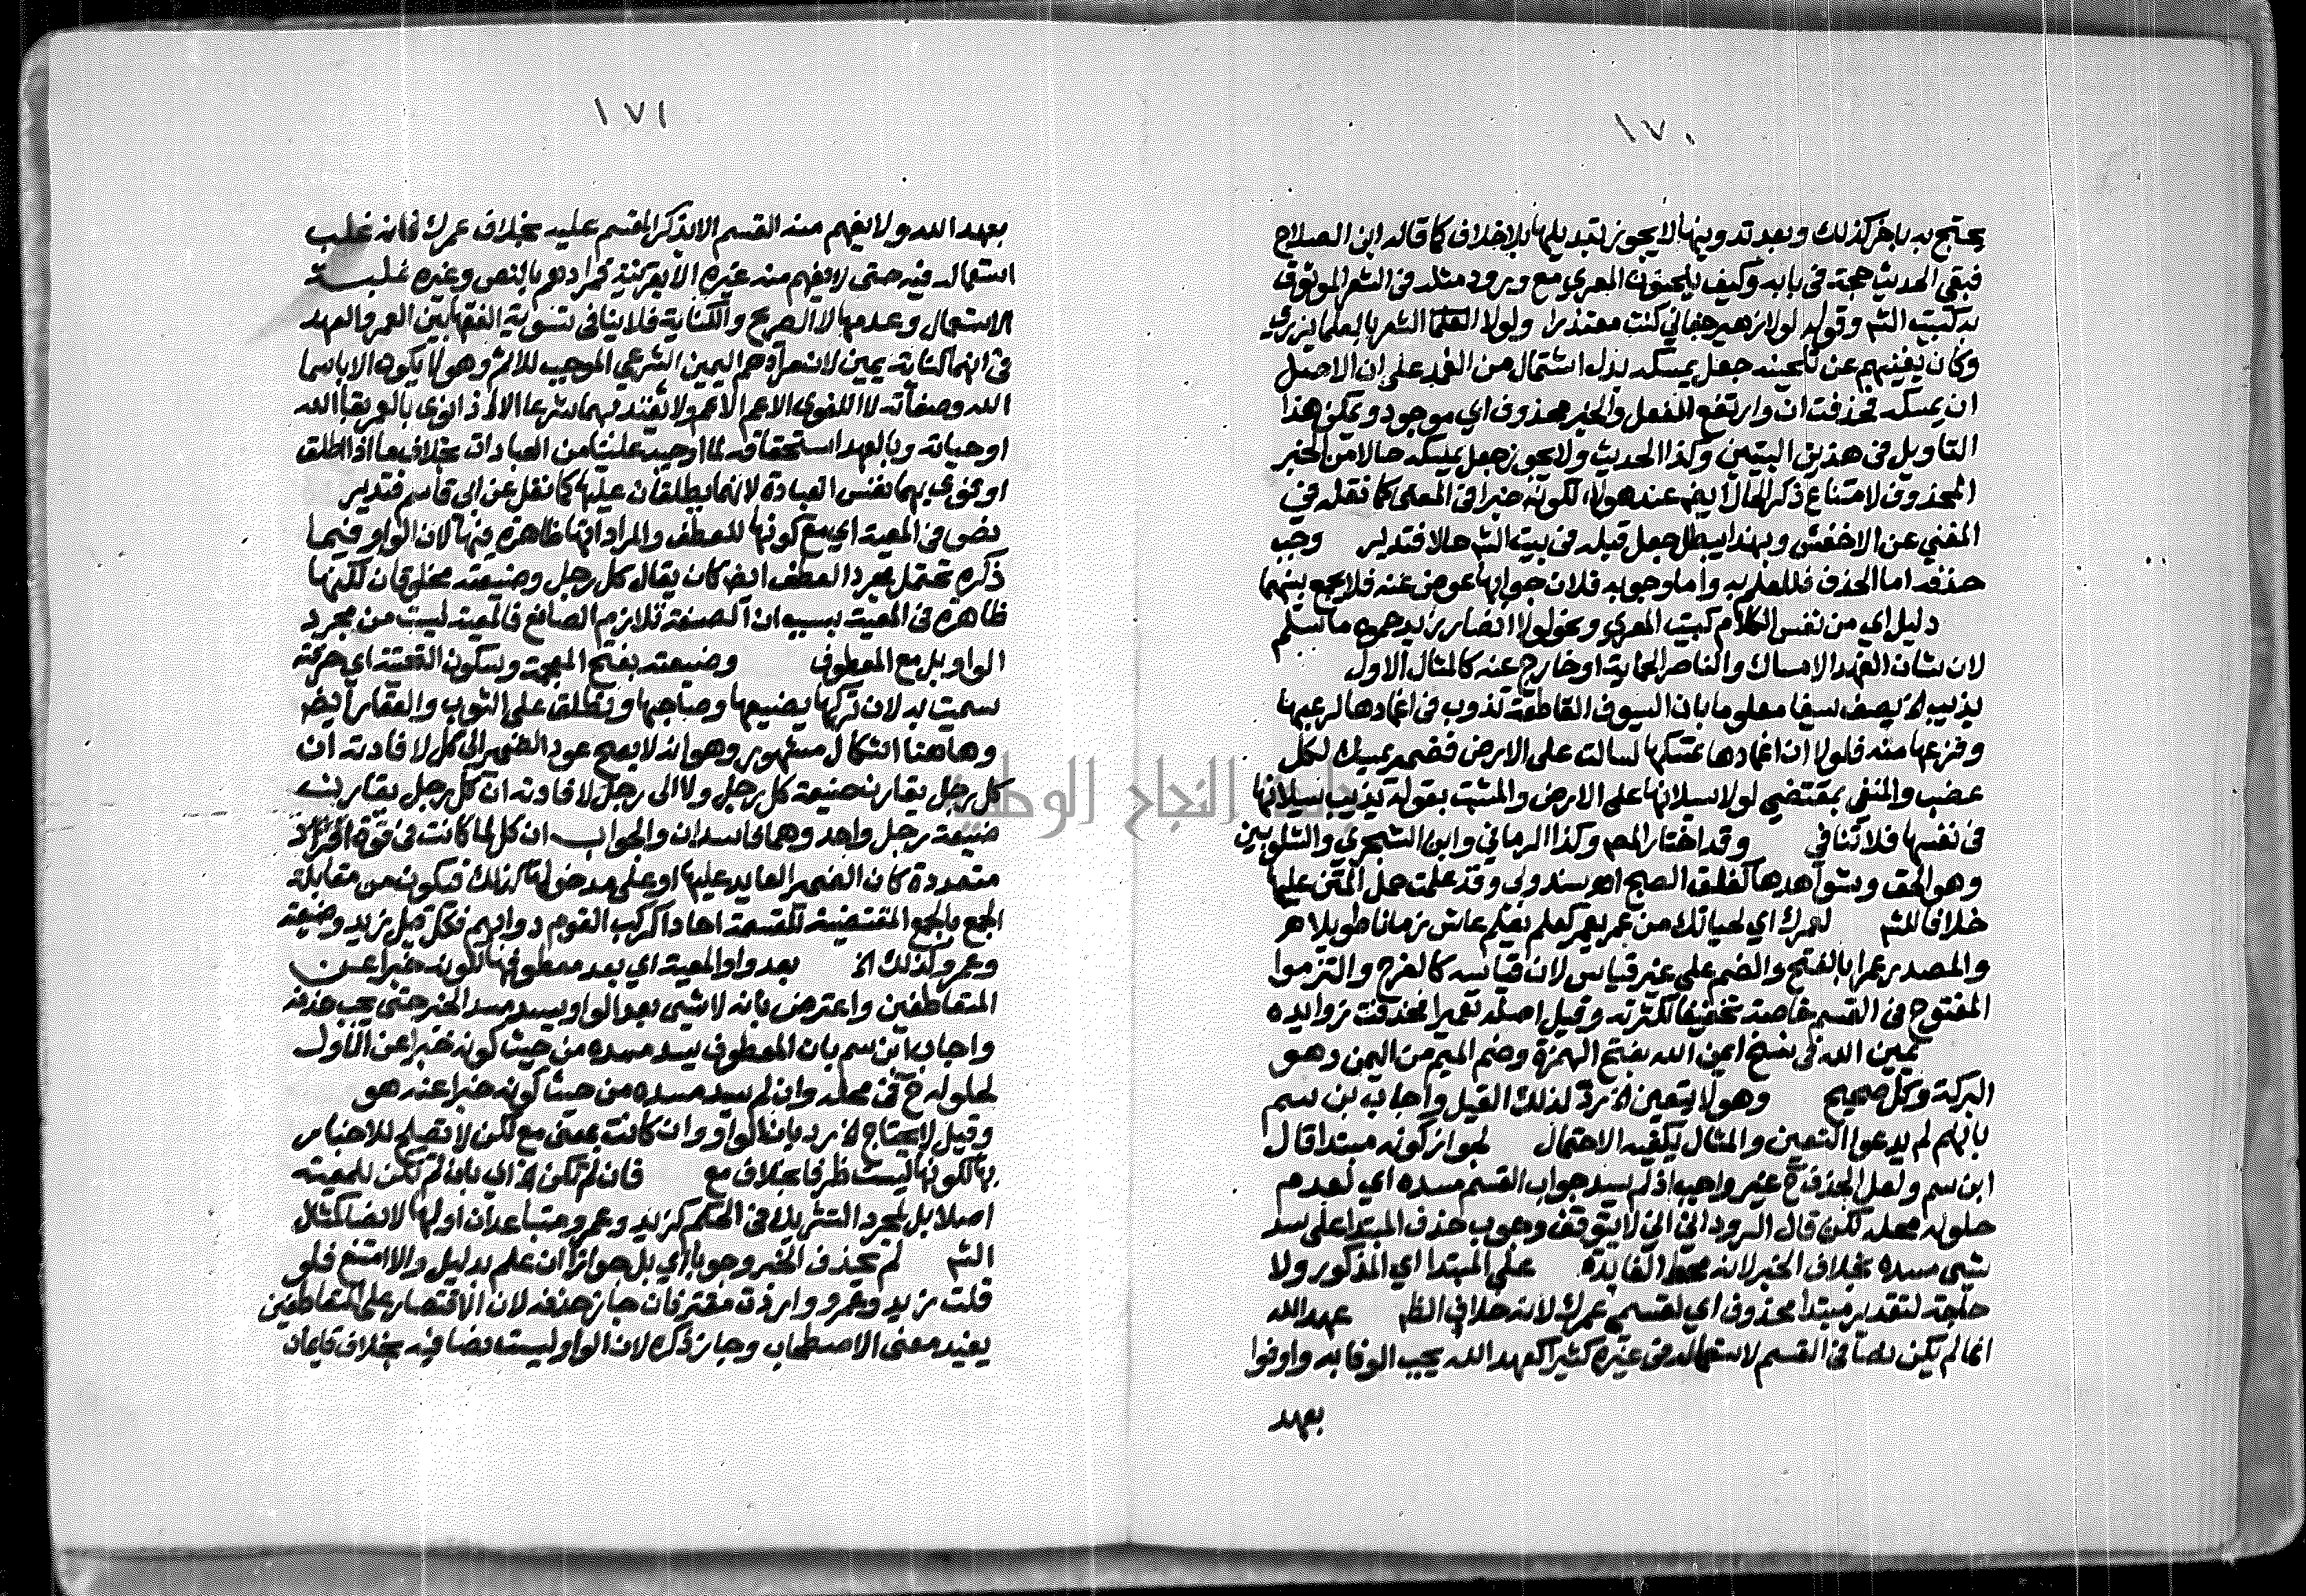 ١٧٠
يحتج به باخر كذلك وبعد تدوينها لا يجوز تبديلها بلا خلاف كما قاله ابن الصلاح
فبقي الحديث حجة في بابه وكيف يلحنون المعري مع ورود مثله في الشعر الموثوق
به كبيت الشم وقوله لولا زهير جفاني كنت معتذرا ولولا الشعر بالعلما يزري
وكان يغنيهم عن تلحينه جعل يمسكه بدل اشتمال من الغمد على ان الاصل
ان يمسكه فحذفت ان وارتفع الفعل والخبر محذوف اي موجود ويمكن هذا
التاويل في هذين البيتين وكذا الحديث ولا يجوز جعل يمسكه حالا من الخبر
المحذوف لامتناع ذكر الحال ايض عند هولاء لكونه خبرا في المعنى كما نقله في
المغني عن الاخفش وبهذا يبطل جعل قبله في بيت الشم حالا فتدبر وجب
حذفه اما الحذف فللعلم به واما وجوبه فلان جوابها عوض عنه فلا يجمع بينهما
دليل اي من نفس الكلام كبيت المعري ونحو لولا انصار زيد حموه ما سلم
لان شان الغمد الامساك والناصر الحماية او خارج عنه كالمثال الاول
يذيب الخ يصف سيفا معلوما بان السيوف القاطعة تذوب في اغمادها لرعبها
وفزعها منه فلولا ان اغمادها تمسكها لسالت على الارض فضمير يمسك لكل
عضب والمنفي بمقتضي لولا سيلانها على الارض والمثبت بقوله يذيب سيلانها
في نفسها فلا تنافي وقد اختار المص وكذا الرماني وابن الشجري والشلوبين
وهو الحق وشواهدها كفلق الصبح اهـ سندوبي وقد علمت حمل المتن عليها
خلافا للشم لعمرك اي لحياتك من عمر يعمر كعلم يعلم عاش زمانا طويلا هر
والمصدر عمرا بالفتح والضم على غير قياس لان قياسه كالفرح والتزموا
المفتوح في القسم خاصة تخفيفا لكثرته وقيل اصله تعميرا فحذفت زوايده
يمين الله في نسخ ايمن الله بفتح الهمزة وضم الميم من اليمن وهو
البركة وكل صحيح وهو لا يتعين الخ رد لذلك القيل واجاب بن سم
بانهم لم يدعوا التعين والمثال يكفيه الاحتمال لجواز كونه مبتدا قال
ابن سم ولعل الحذف ح غير واجب اذ لم يسد جواب القسم مسده اي لعدم
حلوله محله لكن قال الروداني اني لا يتوقف وجوب حذف المبتدا على سد
شيء مسده بخلاف الخبر لانه محط الفايدة على المبتدا اي المذكور ولا
حاجة لتقدير مبتدا محذوف اي لقسمي عمرك لانه خلاف الظ عهد الله
انما لم يكن نصا في القسم لاستعماله في غيره كثيرا كعهد الله يجب الوفا به واوفوا
بعهد
١٧١
بعهد الله ولا يفهم منه القسم الا بذكر المقسم عليه بخلاف عمرك فانه غلب
استعماله فيه حتى لا يفهم منه غيره الا بقرينة فمرادهم بالنص وغيره غلبة
الاستعمال وعدمها لا الصريح والكناية فلا ينافي تسوية الفقها بين العمر والعهد
في انهما كناية يمين لان مرادهم اليمين الشرعي الموجب للاثم وهو لا يكون الا باسما
الله وصفاته لا اللغوي الاعم الاعم ولا يعتد بهما شرعا الا اذا نوى بالعمر بقا الله
او حياته وبالعهد استحقاقه لما اوجبه علينا من العبادات بخلاف ما اذا اطلق
او نوى بهما نفس العبادة لانهما يطلقان عليها كما نقل عن ابن قاسم فتدبر
نص في المعية اي مع كونها للعطف والمراد انها ظاهرة فيها لان الواو فيما
ذكره تحتمل مجرد العطف ايض كان يقال كل رجل وضيعته مخلوقان لكنها
ظاهرة في المعية بسبب ان الصنعة تلازم الصانع فالمعية ليست من مجرد
الواو بل مع المعطوف وضيعته بفتح المعجمة وسكون التحتية اي حرفته
سميت به لان تركها يضيعها وصاحبها وتطلق على الثوب والعقار ايض
وهاهنا اشكال مشهور وهو انه لا يصح عود الضمير الى كل لافادته ان
كل رجل يقارن ضيعة كل رجل ولا الى رجل لافادته ان كل رجل يقارن
ضيعة رجل واحد وهما فاسدان والجواب ان كل لما كانت في قوة افراد
متعددة كان الضمير العايد عليها او على مدخولها كذلك فيكون من مقابلة
الجمع بالجمع المقتضية للقسمة احادا كركب القوم دوابهم فكل قيل زيد وضيعته
وعمرو كذلك الخ بعد واو المعية اي بعد معطوفها لكونه خبرا عن
المتعاطفين واعترض بانه لا شيء بعد الواو يسد مسد الخبر حتى يجب حذفه
واجاب ابن سم بان المعطوف يسد مسده من حيث كونه خبرا عن الاول
لحلوله ح في محله وان لم يسد مسده من حيث كونه خبرا عنه هو
وقيل لا يحتاج الخ رد بان الواو وان كانت بمعنى مع لكن لا تصلح للاخبار
بها لكونها ليست ظرفا بخلاف مع فان لم تكن الخ اي بان لم تكن للمعية
اصلا بل لمجرد التشريك في الحكم كزيد وعمرو متباعدان اولها لا نصا كمثال
الشم لم يحذف الخبر وجوبا اي بل جوازا ان علم بدليل والا امتنع فلو
قلت زيد وعمرو واردت مقترنان جاز حذفه لان الاقتصار على المتعاطفين
يفيد معنى الاصطحاب وجاز ذكره لان الواو ليست نصا فيه بخلاف قايمان
جامعة النجاح الوطنية